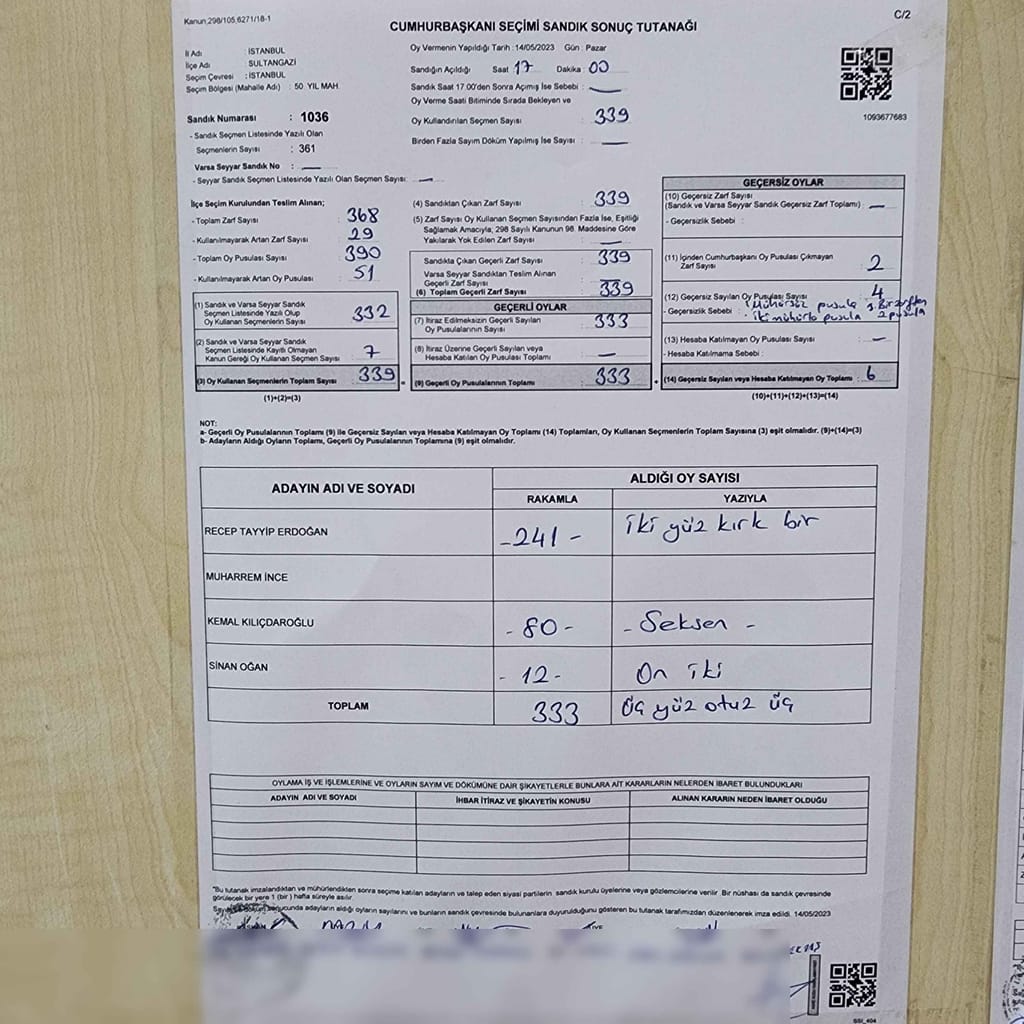 Kanun 298/105,6271/18-1
C/2
CUMHURBAŞKANI SEÇİMİ SANDIK SONUÇ TUTANAĞI
İl Adı : İSTANBUL
İlçe Adı : SULTANGAZİ
Seçim Çevresi : İSTANBUL
Seçim Bölgesi (Mahalle Adı) : 50. YIL MAH.
Sandık Numarası : 1036
- Sandık Seçmen Listesinde Yazılı Olan
Seçmenlerin Sayısı : 361
Varsa Seyyar Sandık No : —
- Seyyar Sandık Seçmen Listesinde Yazılı Olan Seçmen Sayısı: —
Oy Vermenin Yapıldığı Tarih : 14/05/2023 Gün : Pazar
Sandığın Açıldığı Saat 17 Dakika : 00
Sandık Saat 17.00'den Sonra Açımış İse Sebebi : —
Oy Verme Saati Bitiminde Sırada Bekleyen ve
Oy Kullandırılan Seçmen Sayısı : 339
Birden Fazla Sayım Döküm Yapılmış İse Sayısı : —
1093677683
İlçe Seçim Kurulundan Teslim Alınan;
- Toplam Zarf Sayısı : 368
- Kullanılmayarak Artan Zarf Sayısı : 29
- Toplam Oy Pusulası Sayısı : 390
- Kullanılmayarak Artan Oy Pusulası : 51
(1) Sandık ve Varsa Seyyar Sandık
Seçmen Listesinde Yazılı Olup
Oy Kullanan Seçmenlerin Sayısı : 332
(2) Sandık ve Varsa Seyyar Sandık
Seçmen Listesinde Kayıtlı Olmayan
Kanun Gereği Oy Kullanan Seçmen Sayısı : 7
(3) Oy Kullanan Seçmenlerin Toplam Sayısı : 339
(1)+(2)=(3)
(4) Sandıktan Çıkan Zarf Sayısı : 339
(5) Zarf Sayısı Oy Kullanan Seçmen Sayısından Fazla İse, Eşitliği
Sağlamak Amacıyla; 298 Sayılı Kanunun 98. Maddesine Göre
Yakılarak Yok Edilen Zarf Sayısı : —
Sandıkta Çıkan Geçerli Zarf Sayısı : 339
Varsa Seyyar Sandıktan Teslim Alınan
Geçerli Zarf Sayısı :
(6) Toplam Geçerli Zarf Sayısı : 339
GEÇERLİ OYLAR
(7) İtiraz Edilmeksizin Geçerli Sayılan
Oy Pusulalarının Sayısı : 333
(8) İtiraz Üzerine Geçerli Sayılan veya
Hesaba Katılan Oy Pusulası Toplamı : —
(9) Geçerli Oy Pusulalarının Toplamı : 333
GEÇERSİZ OYLAR
(10) Geçersiz Zarf Sayısı
(Sandık ve Varsa Seyyar Sandık Geçersiz Zarf Toplamı) : —
- Geçersizlik Sebebi :
(11) İçinden Cumhurbaşkanı Oy Pusulası Çıkmayan
Zarf Sayısı : 2
(12) Geçersiz Sayılan Oy Pusulası Sayısı : 4
- Geçersizlik Sebebi : Mühürsüz pusula
iki mühürlü pusula 2 pusula
(13) Hesaba Katılmayan Oy Pusulası Sayısı : —
- Hesaba Katılmama Sebebi :
(14) Geçersiz Sayılan veya Hesaba Katılmayan Oy Toplamı : 6
(10)+(11)+(12)+(13)=(14)
NOT:
a- Geçerli Oy Pusulalarının Toplamı (9) ile Geçersiz Sayılan veya Hesaba Katılmayan Oy Toplamı (14) Toplamları, Oy Kullanan Seçmenlerin Toplam Sayısına (3) eşit olmalıdır. (9)+(14)=(3)
b- Adayların Aldığı Oyların Toplamı, Geçerli Oy Pusulalarının Toplamına (9) eşit olmalıdır.
ADAYIN ADI VE SOYADI
ALDIĞI OY SAYISI
RAKAMLA YAZIYLA
RECEP TAYYİP ERDOĞAN -241- iki yüz kırk bir
MUHARREM İNCE
KEMAL KILIÇDAROĞLU -80- - Seksen -
SİNAN OĞAN -12- On iki
TOPLAM 333 Üç yüz otuz üç
OYLAMA İŞ VE İŞLEMLERİNE VE OYLARIN SAYIM VE DÖKÜMÜNE DAİR ŞİKAYETLERLE BUNLARA AİT KARARLARIN NELERDEN İBARET BULUNDUKLARI
ADAYIN ADI VE SOYADI İHBAR İTİRAZ VE ŞİKAYETİN KONUSU ALINAN KARARIN NEDEN İBARET OLDUĞU
"Bu tutanak imzalandıktan ve mühürlendikten sonra seçime katılan adayların ve talep eden siyasi partilerin sandık kurulu üyelerine veya gözlemcilerine verilir. Bir nüshası da sandık çevresinde
görülecek bir yere 1 (bir) hafta süreyle asılır.
sonucunda adayların aldığı oyların sayılarını ve bunların sandık çevresinde bulunanlara duyurulduğunu gösteren bu tutanak tarafımızdan düzenlenerek imza edildi. 14/05/2023
SSI_404